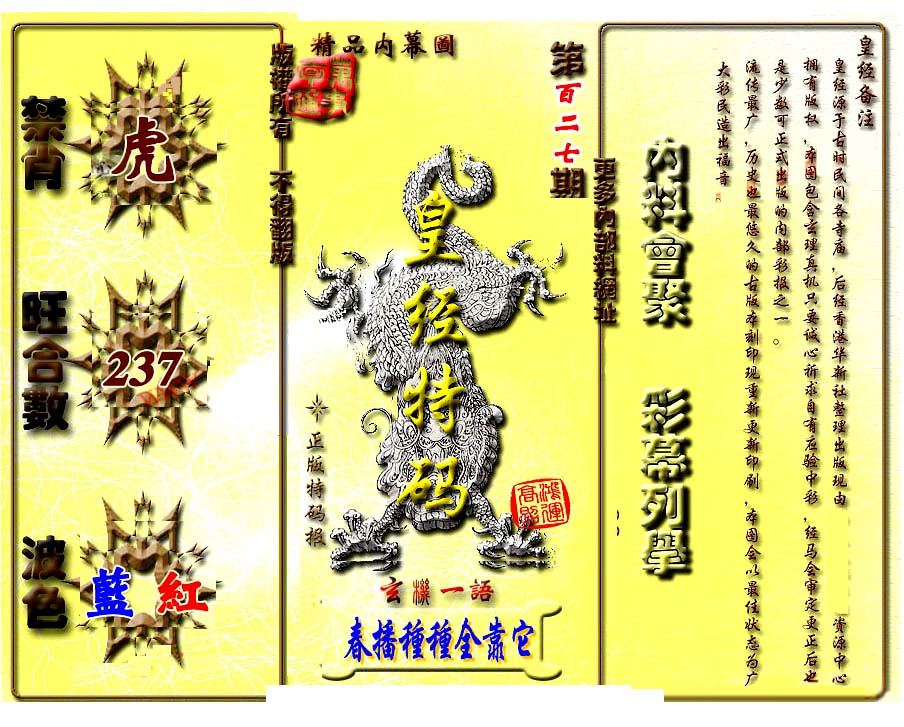 皇经备注
皇经源于古时民间各寺庙，后经香港华新社整理出版现由 资源中心
拥有版权，本图包含玄理真机只要诚心祈求自有应验中彩，经马会审定更正后也
是少数可正式出版的内部彩报之一。
流传最广，历史也最悠久的古版本刻印现重新更新印刷，本图会以最佳状态为广
大彩民造出福音
內料會聚 彩幕列舉
更多內部料網址
第百二七期
精品内幕圖
版權所有 不得翻版
皇经特码
正版特码报
鴻運高照
玄機一語
春播種種全靠它
禁肖
虎
旺合數
237
波色
藍 紅